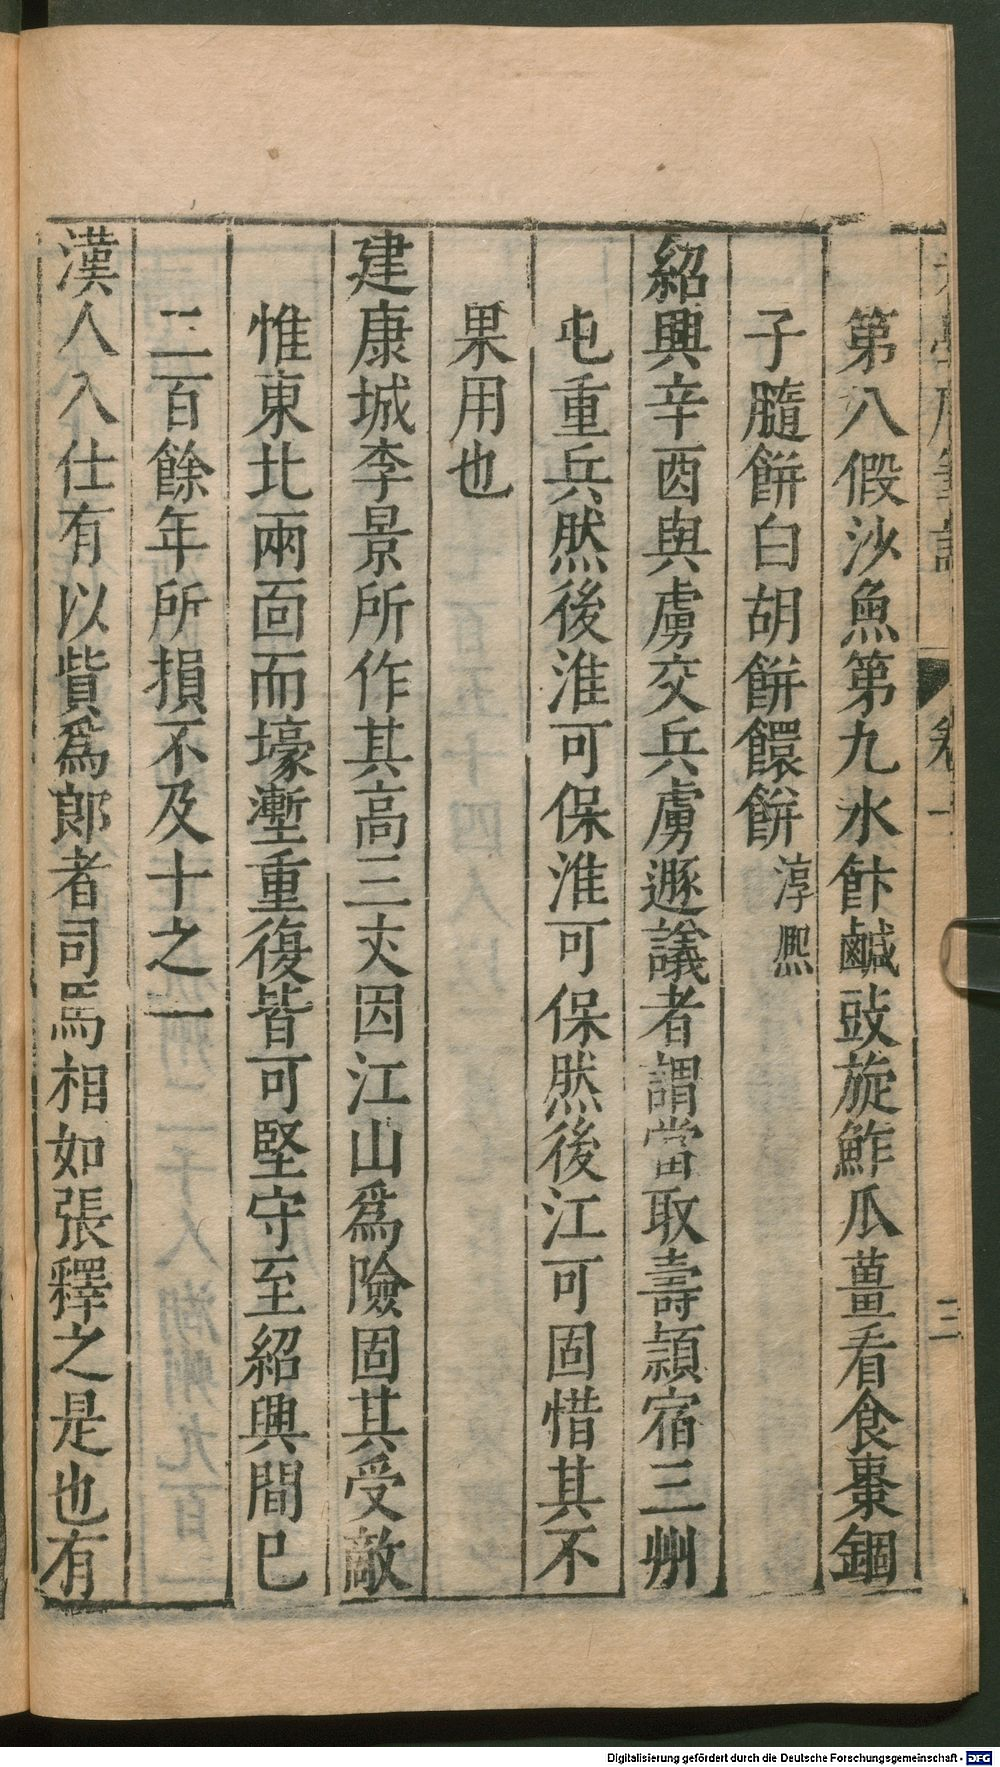 第八假沙魚第九水飰鹹豉旋鮓瓜薑看食棗錮
子髓餅白胡餅饌餅淳熈
紹興辛酉與虜交兵虜遯議者謂當取壽潁宿三州
屯重兵然後淮可保淮可保然後江可固惜其不
果用也
建康城李景所作其高三丈因江山爲險固其受敵
惟東北兩面而壕塹重復皆可堅守至紹興間巳
二百餘年所損不及十之一
漢人入仕有以貲爲郎者司馬相如張釋之是也有
Digitalisierung gefördert durch die Deutsche Forschungsgemeinschaft - DFG